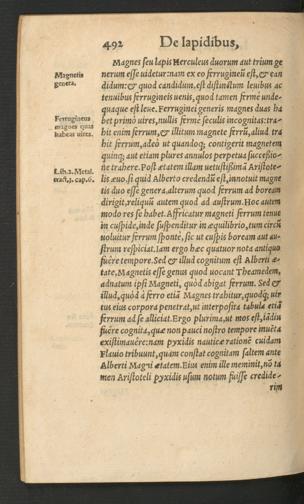 492 De lapidibus,
Magnes seu lapis Herculeus duorum aut trium ge
nerum esse uidetur: nam ex eo ferrugineū est, & can
didum: & quod candidum, est distinctum leuibus ac
tenuibus ferrugineis uenis, quod tamen fermè unde-
quaque est leue. Ferruginei generis magnes duas ha
bet primò uires, nullis fermè seculis incognitas: tra-
hit enim ferrum, & illitum magnete ferrū, aliud tra
hit ferrum, adeò ut quandoq; contigerit magnetem
quinq; aut etiam plures annulos perpetua successio-
ne trahere. Post ætatem illam uetustissimā Aristote-
lis æuo, si quid Alberto credendū est, innotuit magne
tis duo esse genera. alterum quod ferrum ad boream
dirigit, reliquū autem quod ad austrum. Hoc autem
modo res se habet. Affricatur magneti ferrum tenue
in cuspide, inde suspenditur in æquilibrio, tum circū
uoluitur ferrum sponte, sic ut cuspis boream aut au-
strum respiciat. Iam ergo hæc quatuor nota antiquo
fuêre tempore. Sed & illud cognitum est Alberti æ-
tate, Magnetis esse genus quod uocant Theamedem,
adnatum ipsi Magneti, quòd abigat ferrum. Sed &
illud, quòd à ferro etiā Magnes trahitur, quodq; uir
tus eius corpora penetrat, ut interposita tabula etiā
ferrum ad se alliciat. Ergo plurima, ut mos est, iādiu
fuêre cognita, quæ non pauci nostro tempore inuēta
existimauêre: nam pyxidis nauticæ rationē cuidam
Flauio tribuunt, quam constat cognitam saltem ante
Alberti Magni ætatem. Eius enim ille meminit, nō ta
men Aristoteli pyxidis usum notum fuisse credide-
rim
Magnetis
genera.
Ferrugineus
magnes quas
habeat uires.
Lib. 2. Metal.
tract. 3. cap. 6.